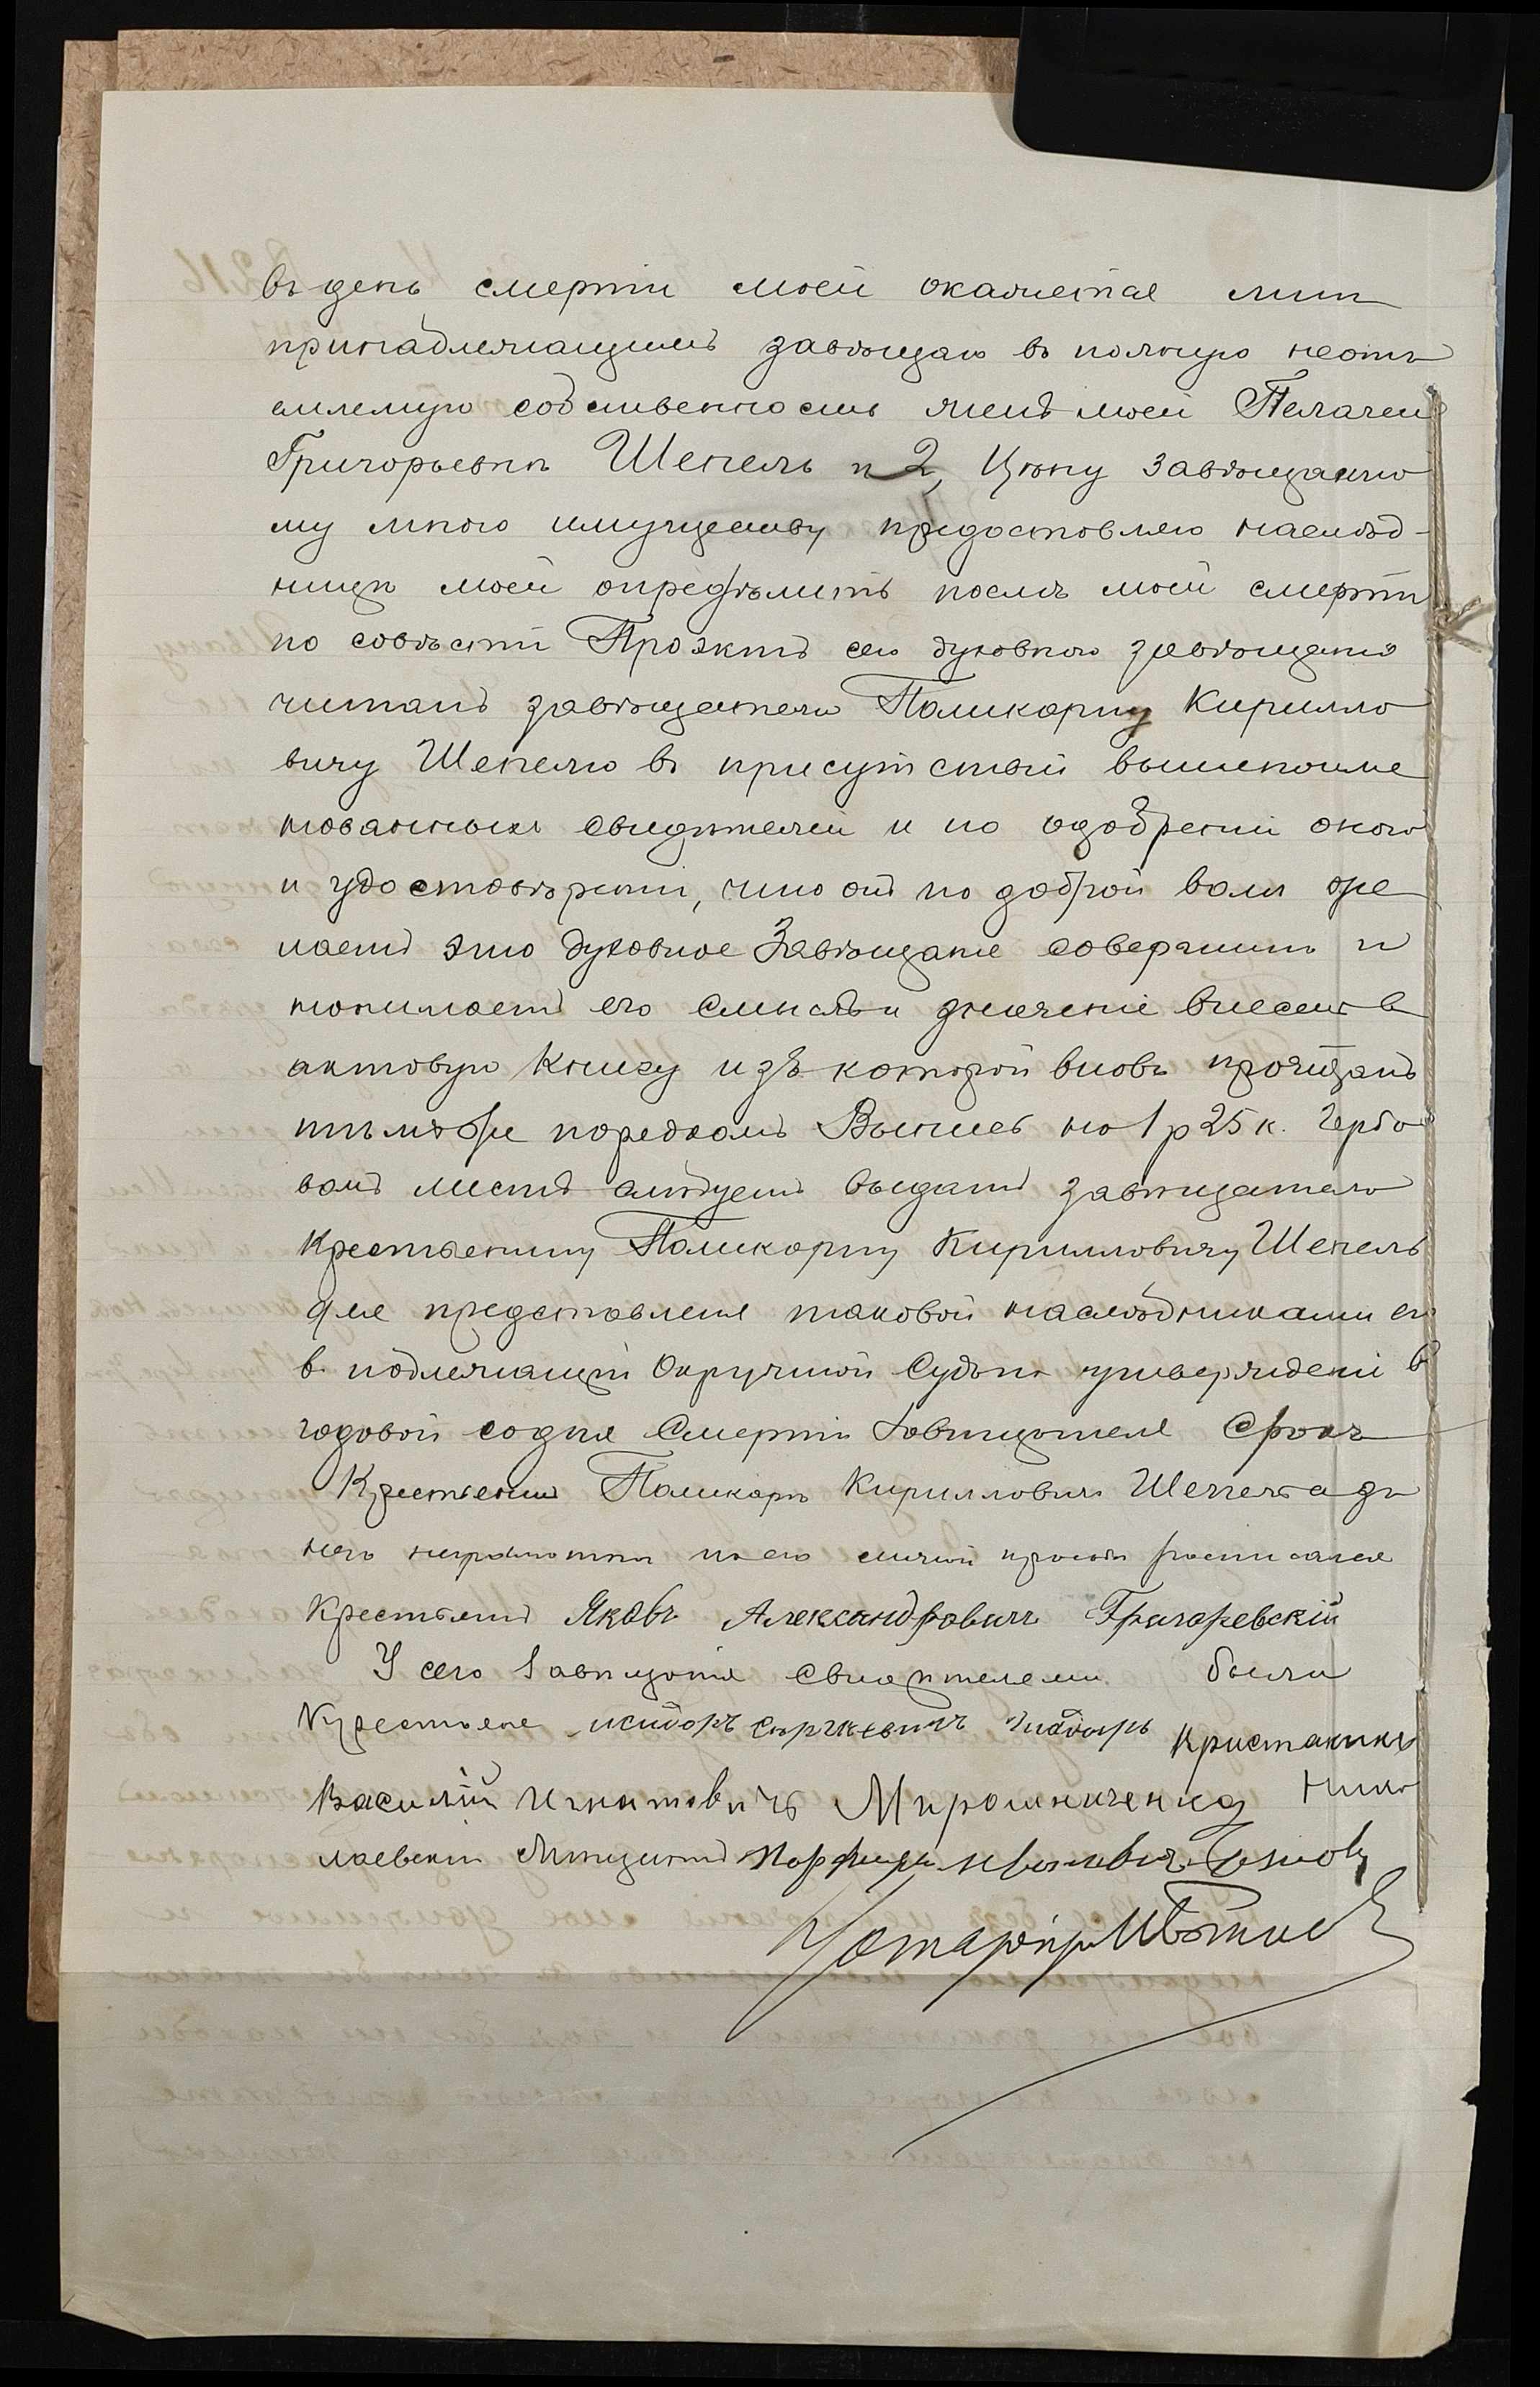 въ день смерти моей окажется мнѣ
принадлежащимъ завѣщаю въ полную неотъ
емлемую собственность женѣ моей Пелагеи
Григорьевнѣ Шепель и 2, Цѣну завѣщанно
му мною имуществу предоставляю наслѣд-
ницѣ моей опредѣлить послѣ моей смерти
по совѣсти Проэктъ сего духовного завѣщанія
читанъ завѣщателю Поликарпу Кирилло
вичу Шепелю въ присутствіи вышепоиме
нованныхъ свидѣтелей и по одобреніи оного
и удостовѣреніи, что онъ по доброй воли же
лаетъ это духовное Завѣщаніе совершить и
понимаетъ его смыслъ и значеніе внесенъ въ
актовую книгу изъ которой вновь прочитанъ
тѣмъ же порядкомъ Выпись на 1 р 25 к. Гербо
вомъ листѣ слѣдуетъ выдать завѣщателю
Крестьянину Поликарпу Кирилловичу Шепель
для представленія таковой наслѣдниками его
в подлежащій Окружной Судъ къ утвержденію в
годовой со дня Смерти Завѣщателя Срокъ
Крестьянинъ Поликарпъ Кирилловичъ Шепель а за
него неграмотнаго по его личной просьбѣ росписался
Крестьянинъ Яковъ Александровичъ Григоревскій
У сего Завѣщанія Свидѣтелями были
Крестьяне исидоръ Кристьянинъ
Василій Игнатовичъ Мирошниченко Нико
лаевскій Мѣщанинъ Порфирій
Нотаріусъ